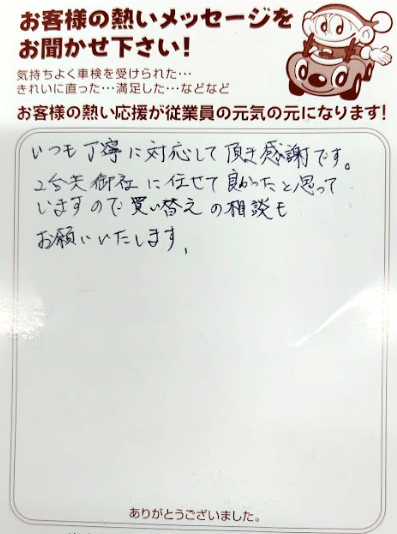 お客様の熱いメッセージを
お聞かせ下さい！
気持ちよく車検を受けられた…
きれいに直った…満足した…などなど
お客様の熱い応援が従業員の元気の元になります！
いつも丁寧に対応して頂き感謝です。
2台共御社に任せて良かったと思って
いますので買い替えの相談も
お願いいたします。
ありがとうございました。